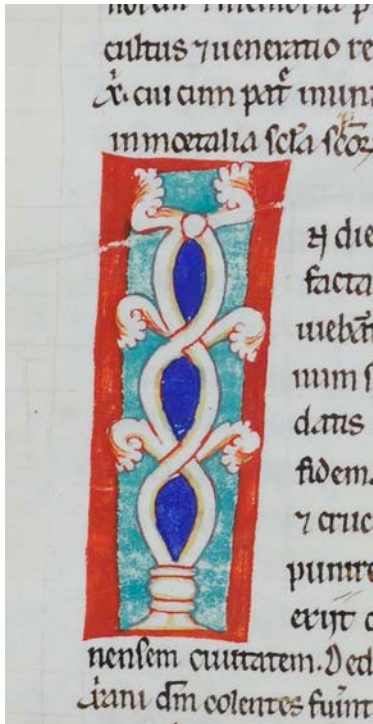 cultus ⁊ ueneratio re
x̄. cui cum pat̄ in una
inmortalia sc̄la sc̄oꝝ
I
N die
facta
uiebāt
num s
datis
fidem.
⁊ cruc
punire
exijt c
nensem ciuitatem. Ded
x̄r̄ani dm̄ colentes fuīt